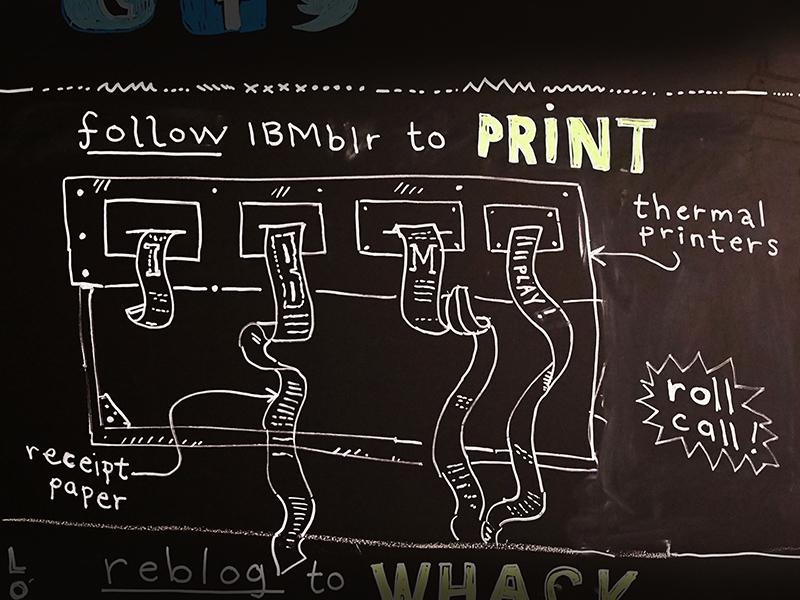 follow IBMblr to PRiNT
thermal
printers
I
B
M
PLAY!
roll
call!
receipt
paper
reblog to WHACK